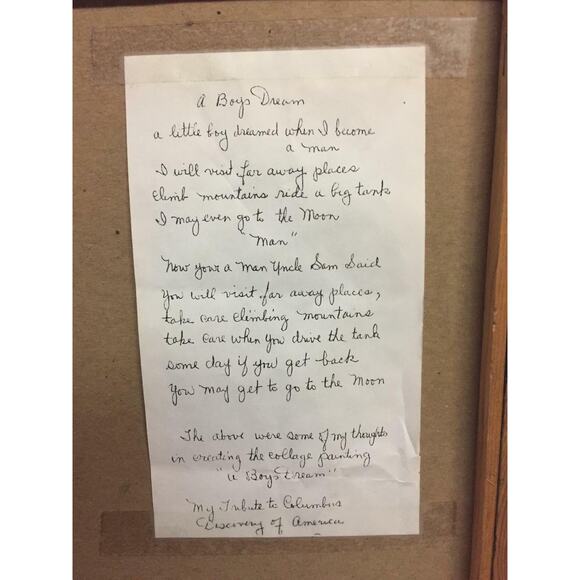 A Boys Dream
a little boy dreamed when I become
a man
I will visit far away places
Climb mountains ride a big tank
I may even go to the Moon
"Man"
Now your a Man Uncle Sam Said
You will visit far away places,
take care climbing mountains
take care when you drive the tank
some day if you get back
You may get to go to the Moon
The above were some of my thoughts
in creating the collage painting
"A Boys Dream"
My Tribute to Columbus
Discovery of America